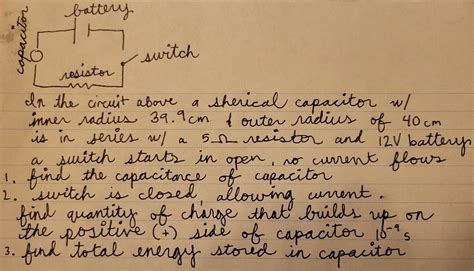 battery
capacitor
switch
resistor
In the circuit above a sherical capacitor w/
inner radius 39.9cm & outer radius of 40cm
is in series w/ a 5Ω resistor and 12V battery
a switch starts in open, no current flows
1. find the capacitance of capacitor
2. switch is closed, allowing current.
find quantity of charge that builds up on
the positive (+) side of capacitor 10⁻⁹s
3. find total energy stored in capacitor